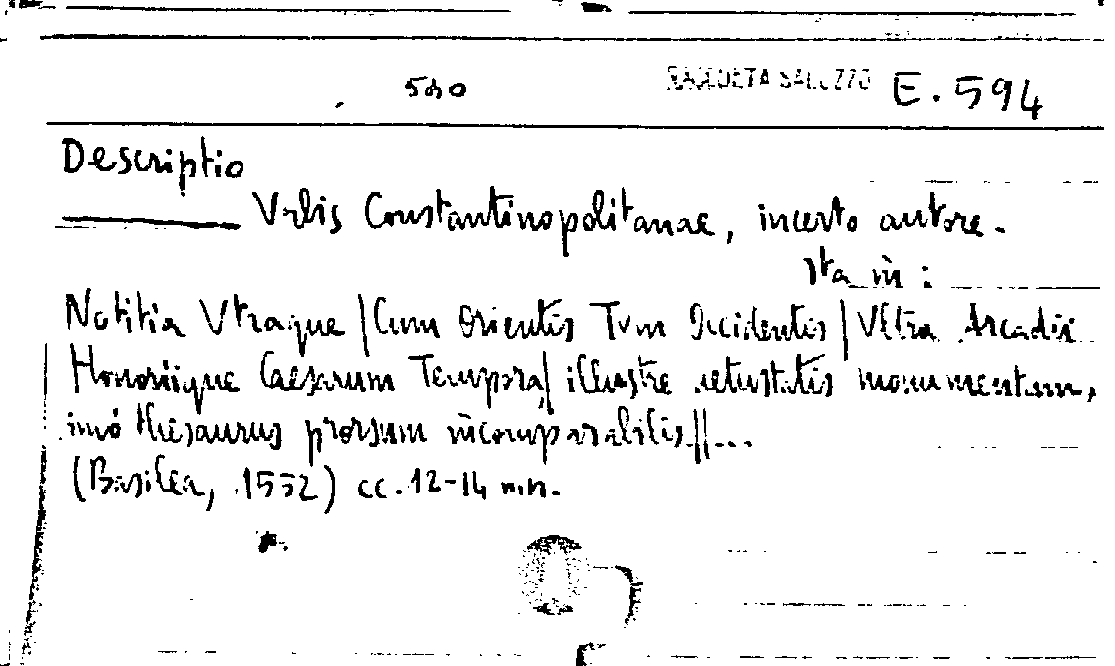 500 RACCOLTA SALUZZO E. 594
Descriptio
Vrbis Constantinopolitanae, incerto autore.
Sta in:
Notitia Vtraque / Cum Orientis Tvm Occidentis / Vltra Arcadii
Honoriique Caesarum Tempora, / illustre uetustatis monumentum,
imò thesaurus prorsum incomparabilis. // ...
(Basilea, 1552) cc. 12-14 n.n.